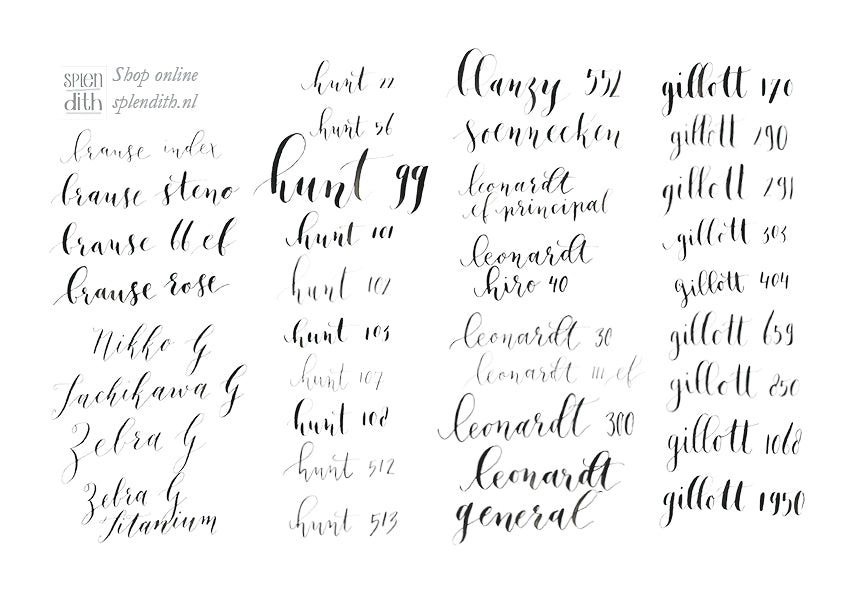 splen
dith
Shop online
splendith.nl
brause index
brause steno
brause 66 ef
brause rose
Nikko G
Tachikawa G
Zebra G
Zebra G
Titanium
hunt 22
hunt 56
hunt 99
hunt 101
hunt 102
hunt 103
hunt 107
hunt 108
hunt 512
hunt 513
blanzy 552
soennecken
leonardt
ef principal
leonardt
hiro 40
leonardt 30
leonardt 111 ef
leonardt 300
leonardt
general
gillott 170
gillott 290
gillott 291
gillott 303
gillott 404
gillott 659
gillott 850
gillott 1068
gillott 1950